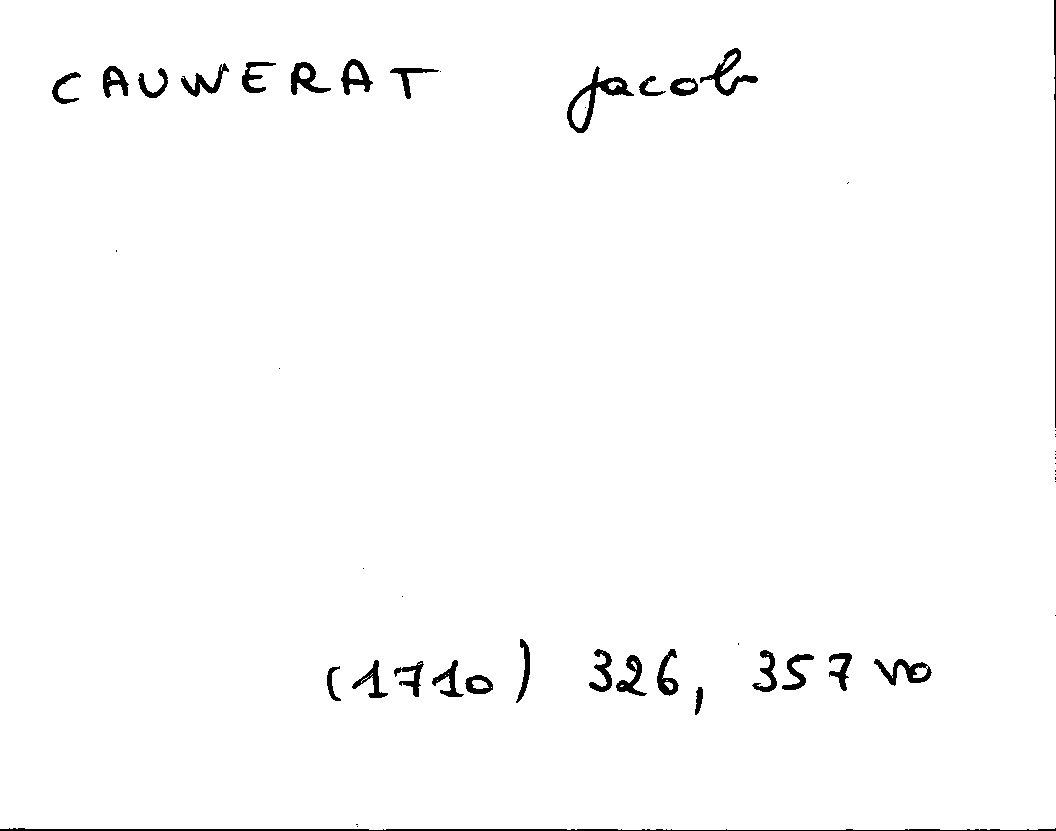 CAUWERAT jacob
(1710) 326, 357 vo